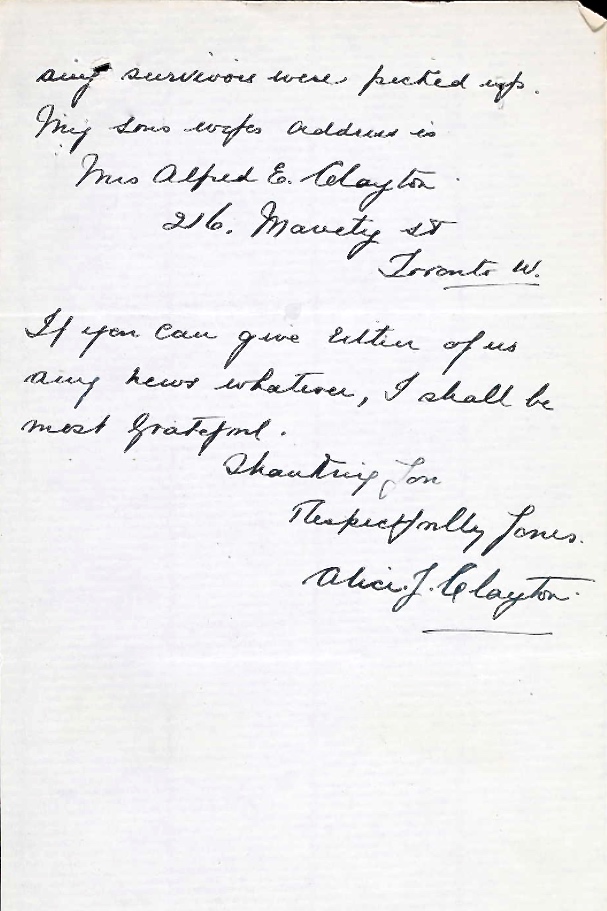 any survivors were picked up.
My sons wifes address is
Mrs Alfred E. Clayton
216. Mavety St
Toronto W.
If you can give either of us
any news whatever, I shall be
most grateful.
Thanking You
Respectfully Yours.
Alice. J. Clayton.